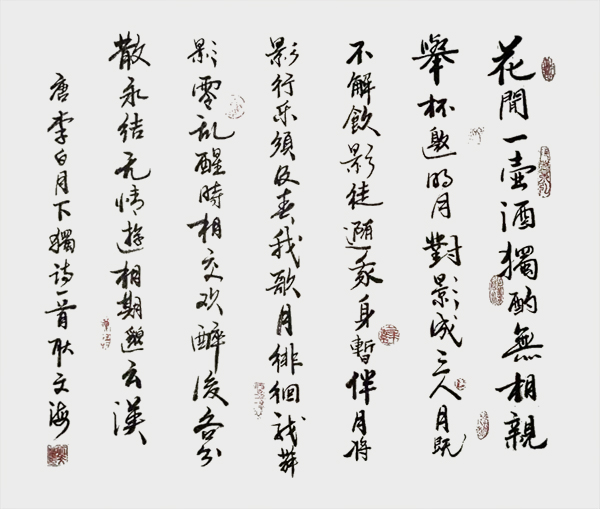 花間一壺酒獨酌無相親
舉杯邀明月對影成三人月既
不解飲影徒随我身暫伴月将
影行乐須及春我歌月徘徊我舞
影零乱醒時相交欢醉後各分
散永结无情遊相期邈云漢
唐李白月下獨诗一首耿文海